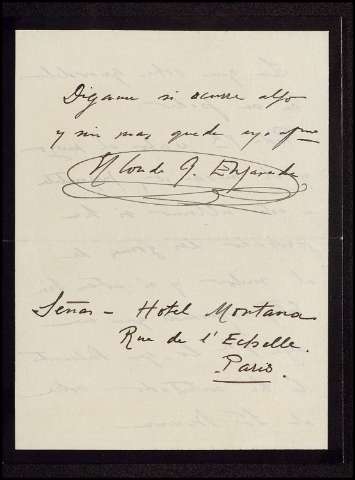 Digame si ocurre algo
y sin mas queda suyo afmo
El Conde G.
Señas - Hotel Montana
Rue de l'Echelle.
Paris.